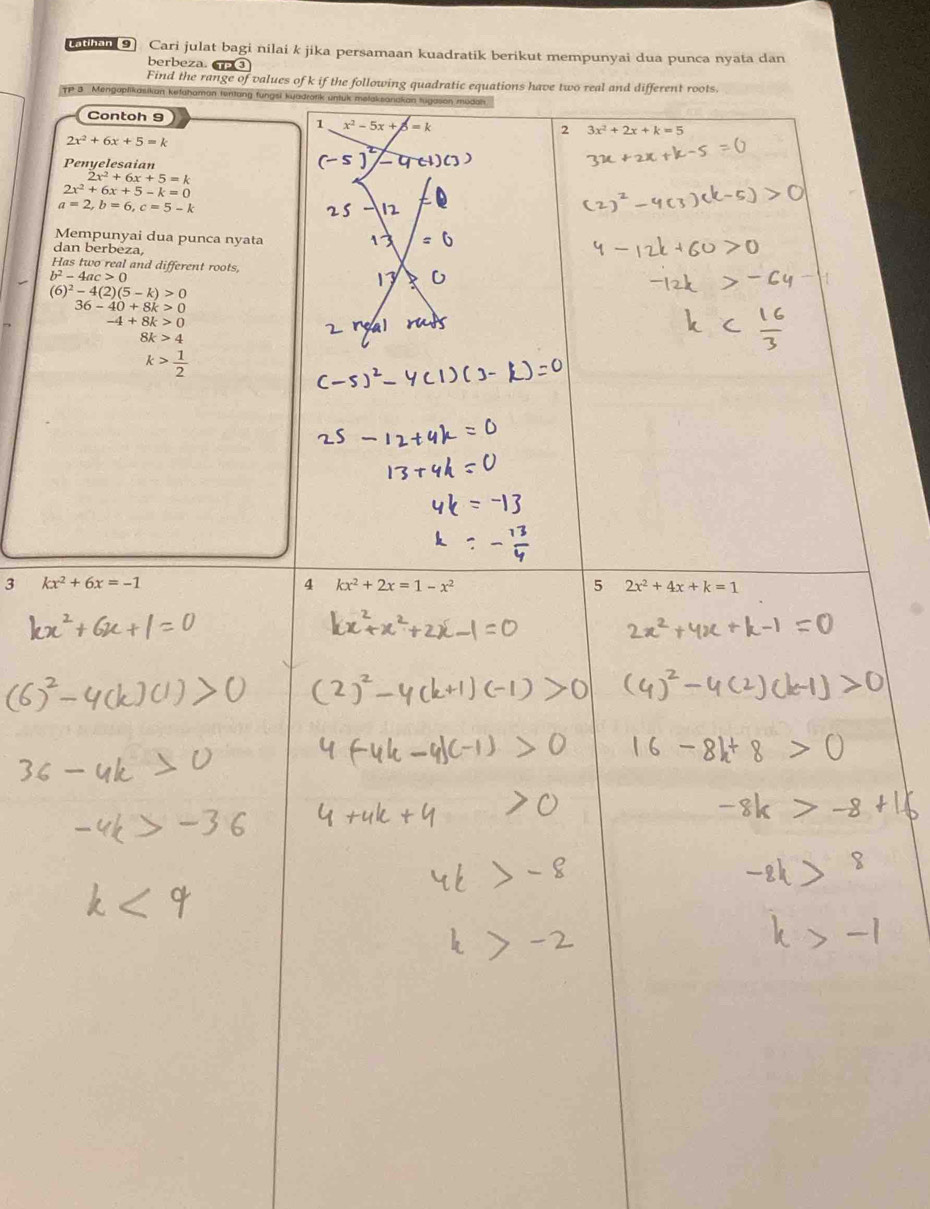 Latihan 9 Cari julat bagi nilai k jika persamaan kuadratik berikut mempunyai dua punca nyata dan
berbeza. TP 3
Find the range of values of k if the following quadratic equations have two real and different roots.
TP 3 Mengaplikasikan kefahaman tentang fungsi kuadratik untuk melaksanakan tugasan mudah.
Contoh 9
2x² + 6x + 5 = k
Penyelesaian
2x² + 6x + 5 = k
2x² + 6x + 5 – k = 0
a = 2, b = 6, c = 5 – k
Mempunyai dua punca nyata
dan berbeza,
Has two real and different roots,
b² – 4ac > 0
(6)² – 4(2)(5 – k) > 0
36 – 40 + 8k > 0
–4 + 8k > 0
8k > 4
k > 1/2
1 x² – 5x + 3 = k
(-5)² - 4(1)(3)
25 - 12 = 0
13 = 0
13 > 0
2 real roots
(-5)² - 4(1)(3 - k) = 0
25 - 12 + 4k = 0
13 + 4k = 0
4k = -13
k = -13/4
2 3x² + 2x + k = 5
3x + 2x + k - 5 = 0
(2)² - 4(3)(k-5) > 0
4 - 12k + 60 > 0
-12k > -64
k < 16/3
3 kx² + 6x = –1
kx² + 6x + 1 = 0
(6)² - 4(k)(1) > 0
36 - 4k > 0
-4k > -36
k < 9
4 kx² + 2x = 1 – x²
kx² + x² + 2x - 1 = 0
(2)² - 4(k+1)(-1) > 0
4 (-4k - 4)(-1) > 0
4 + 4k + 4 > 0
4k > -8
k > -2
5 2x² + 4x + k = 1
2x² + 4x + k - 1 = 0
(4)² - 4(2)(k-1) > 0
16 - 8k + 8 > 0
-8k > -8 + 16
-8k > 8
k > -1